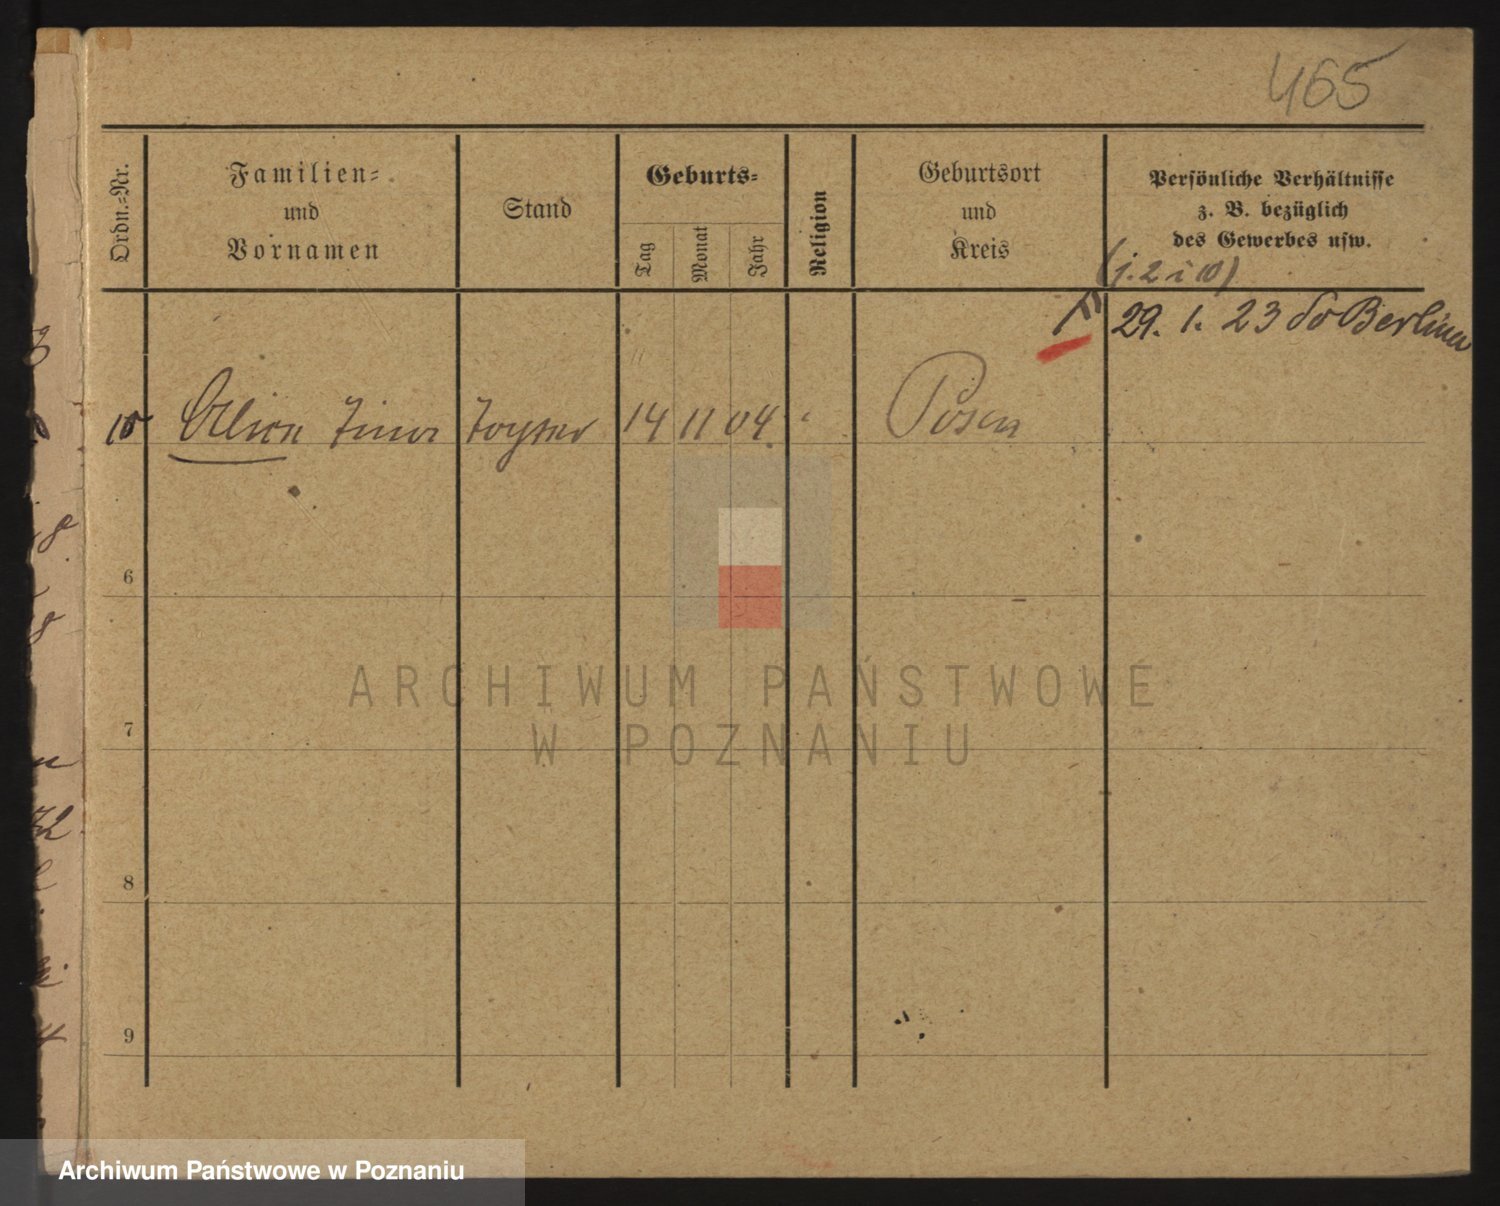 465
Ordn.=Nr.
Familien=
und
Vornamen
Stand
Geburts=
Tag
Monat
Jahr
Religion
Geburtsort
und
Kreis
Persönliche Verhältnisse
z. B. bezüglich
des Gewerbes usw.
29. 1. 23 do Berlina
14 11 04 Posen
6
7
8
9
ARCHIWUM PAŃSTWOWE
W POZNANIU
Archiwum Państwowe w Poznaniu